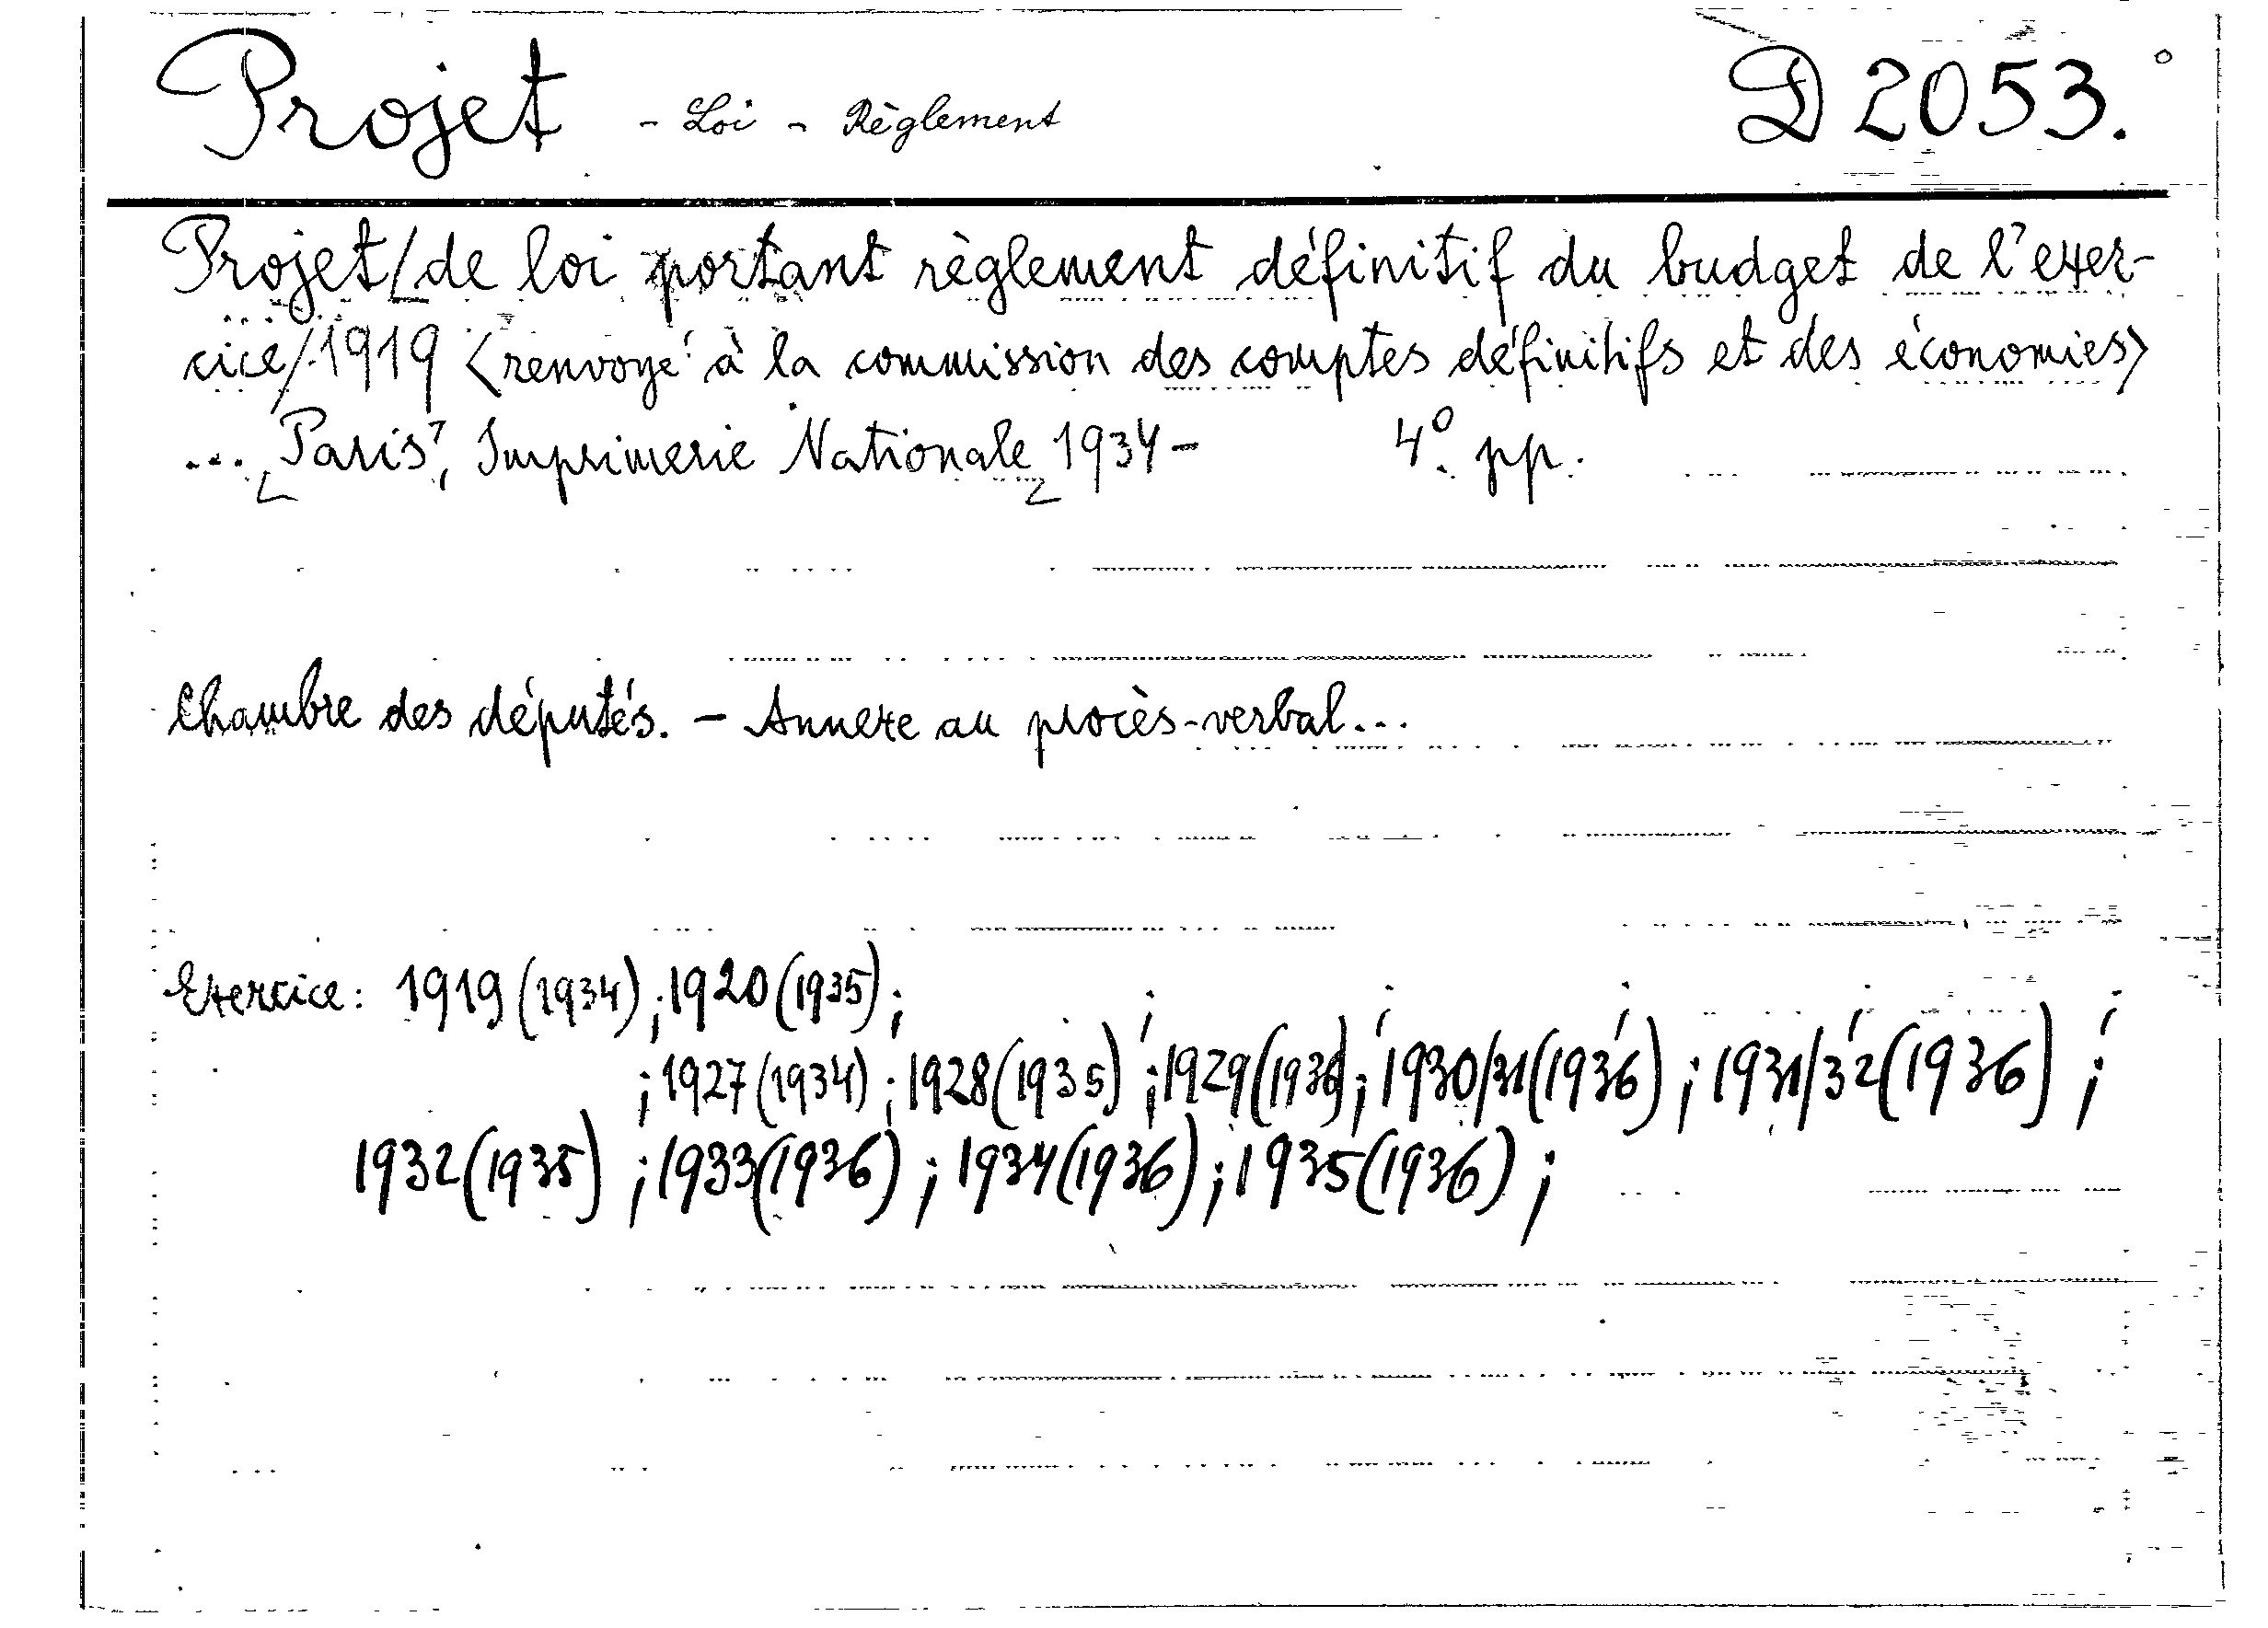 Projet - Loi - Règlement D 2053.°
Projet/de loi portant règlement définitif du budget de l'exer-
cice/1919 <renvoyé à la commission des comptes définitifs et des économies>
... Paris, Imprimerie Nationale 1934- 4°. pp.
Chambre des députés. - Annexe au procès-verbal...
Exercice: 1919 (1934) ; 1920 (1935) ;
; 1927 (1934) ; 1928 (1935) ; 1929 (1936) ; 1930/31 (1936) ; 1931/32 (1936) ;
1932 (1935) ; 1933 (1936) ; 1934 (1936) ; 1935 (1936) ;